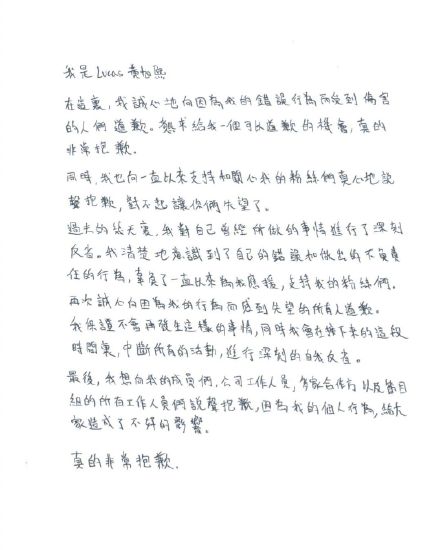 我是 Lucas 黄旭熙
在這裏，我誠心地向因為我的錯誤行為而受到傷害
的人們道歉。懇求給我一個可以道歉的機會，真的
非常抱歉.
同時，我也向一直以來支持和關心我的粉絲們真心地說
聲抱歉，對不起讓你們失望了。
過去的幾天裏，我對自己曾經所做的事情進行了深刻
反省。我清楚地意識到了自己的錯誤和做出的不負責
任的行為，辜負了一直以來為我應援，支持我的粉絲們。
再次誠心向因為我的行為而感到失望的所有人道歉。
我保證不會再發生這樣的事情，同時我會在接下來的這段
時間裏，中斷所有的活動，進行深刻的自我反省。
最後，我想向我的成員們，公司工作人員，各家合作方以及節目
組的所有工作人員們說聲抱歉，因為我的個人行為，給大
家造成了不好的影響。
真的非常抱歉.